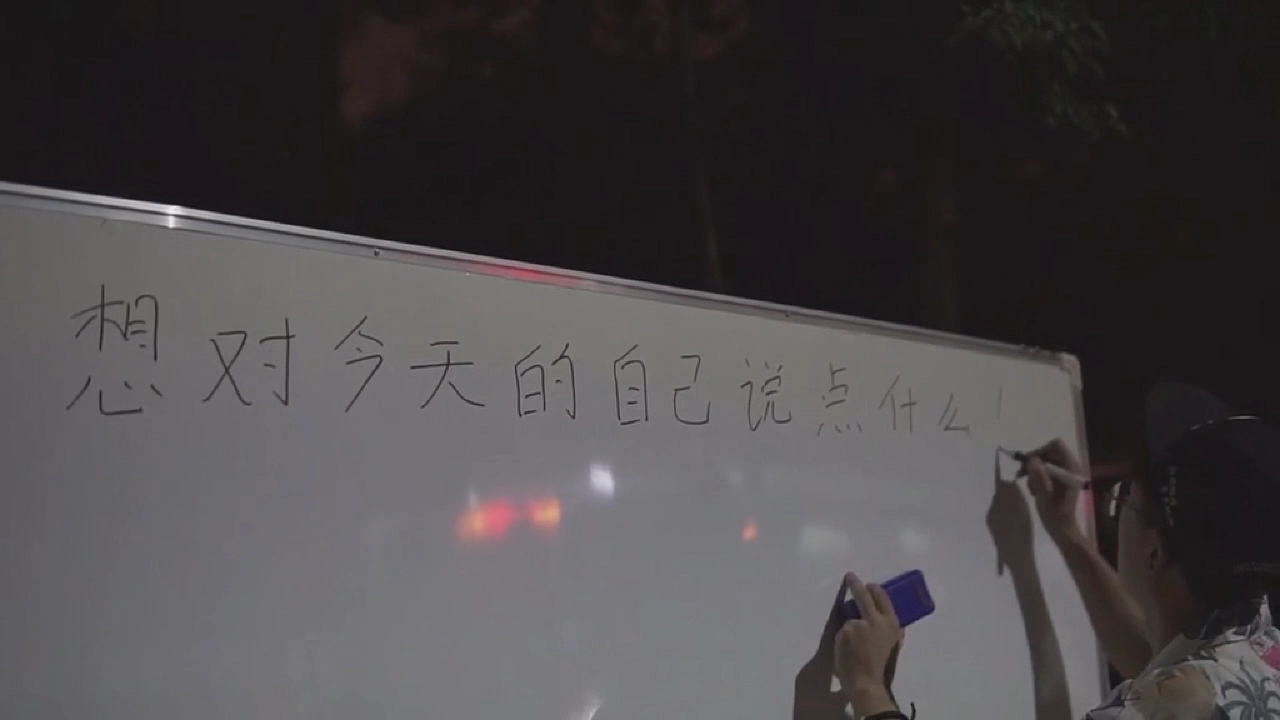 想对今天的自己说点什么！